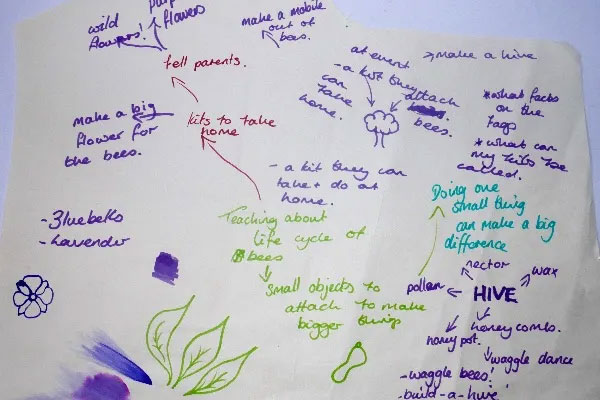 wild
flowers!
flowers
make a mobile
out of
bees.
tell parents.
at event
- a kit they
can
take
home.
attach
bees.
make a hive
*what facts
on the
tags
*what can
my kits be
called.
make a big
flower for
the bees.
kits to take
home
- a kit they can
take + do at
home.
Teaching about
life cycle of
bees
Doing one
small thing
can make a big
difference
- Bluebells
- Lavender
small objects to
attach to make
bigger things
nector
wax
pollen
HIVE
honey combs.
honey pot.
waggle dance
- waggle bees!
- build-a-hive